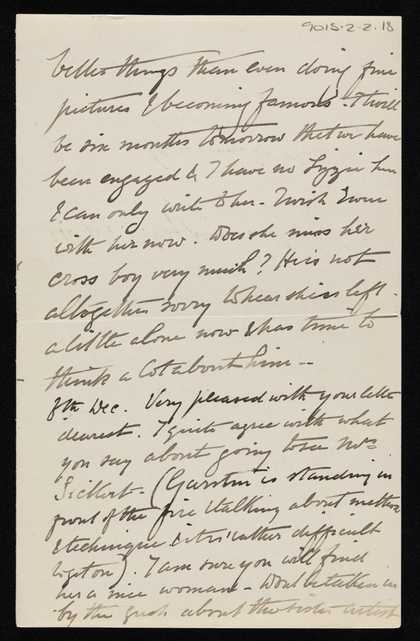 9015-2-2-18
better things than even doing fine
pictures & becoming famous. It will
be six months tomorrow that we have
been engaged & I have no Lizzie here
& can only write to her. I wish I were
with her now. Does she miss her
cross boy very much? He is not
altogether sorry to hear she is left
a little alone now & has time to
think a lot about him —
8th Dec. Very pleased with your letter
dearest. I quite agree with what
you say about going to see Mrs
Sickert. (Garstin is standing in
front of the fire & talking about method
& technique & it is rather difficult
to get on). I am sure you will find
her a nice woman — Dont be taken in
by the gush about the sister artist